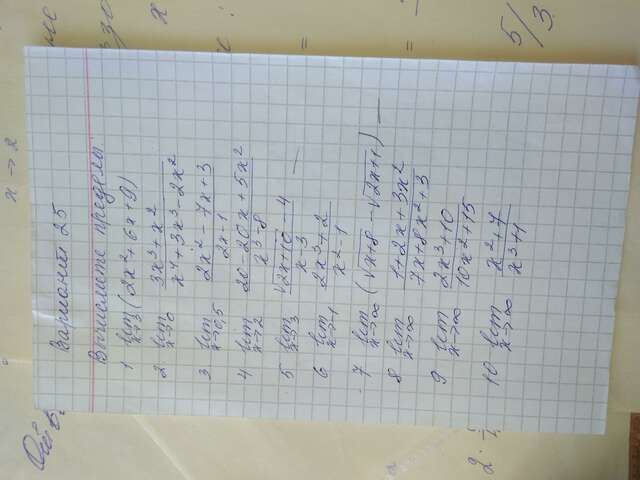 Вариант 25
Вычислите пределы
1 lim x→3 (2x²+6x+9)
2. lim x→0 (3x³+x²)/(x⁴+3x³-2x²)
3 lim x→0,5 (2x²-7x+3)/(2x-1)
4. lim x→2 (20-20x+5x²)/(x³-8)
5 lim x→3 (√(2x+10)-4)/(x-3)
6 lim x→-1 (2x³+2)/(x²-1)
7 lim x→∞ (√(x+8)-√(2x+1))
8 lim x→∞ (1+2x+3x²)/(7x+8x²+3)
9 lim x→∞ (2x³+10)/(10x²+15)
10 lim x→∞ (x²+7)/(x³+1)
x→2
x
=
=
5/3